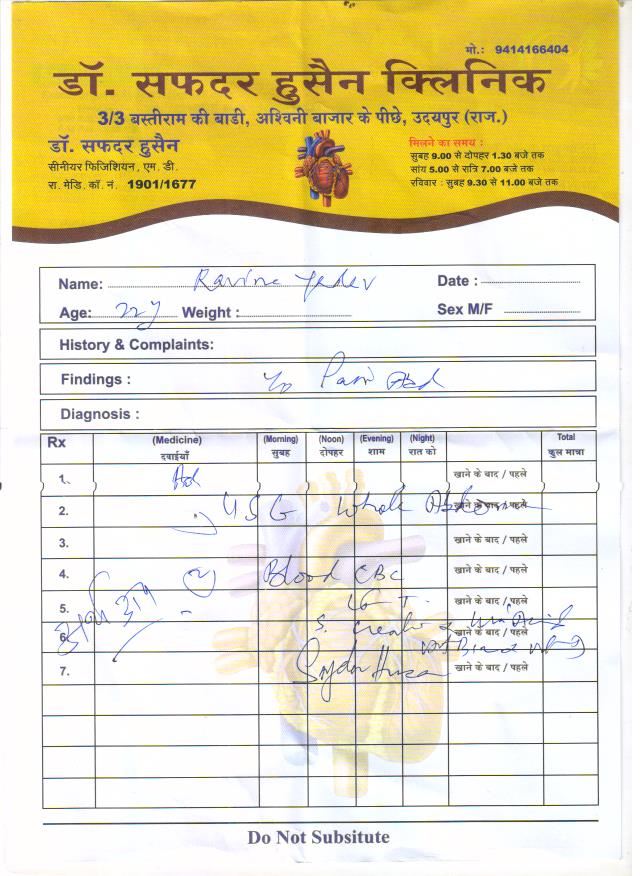 मो.: 9414166404
डॉ. सफदर हुसैन क्लिनिक
3/3 बस्तीराम की बाडी, अश्विनी बाजार के पीछे, उदयपुर (राज.)
डॉ. सफदर हुसैन
सीनीयर फिजिशियन, एम. डी.
रा. मेडि. कॉ. नं. 1901/1677
मिलने का समय :
सुबह 9.00 से दोपहर 1.30 बजे तक
सांय 5.00 से रात्रि 7.00 बजे तक
रविवार : सुबह 9.30 से 11.00 बजे तक
Name: Date :
Age: Weight : Sex M/F
History & Complaints:
Findings : Pain Abd
Diagnosis :
Rx (Medicine) (Morning) (Noon) (Evening) (Night) Total
दवाईयाँ सुबह दोपहर शाम रात को कुल मात्रा
1. Ad खाने के बाद / पहले
2. USG Whole Abdomen खाने के बाद / पहले
3. खाने के बाद / पहले
4. Blood CBC खाने के बाद / पहले
5. खाने के बाद / पहले
6. S. Uric Acid खाने के बाद / पहले
7. खाने के बाद / पहले
Do Not Subsitute